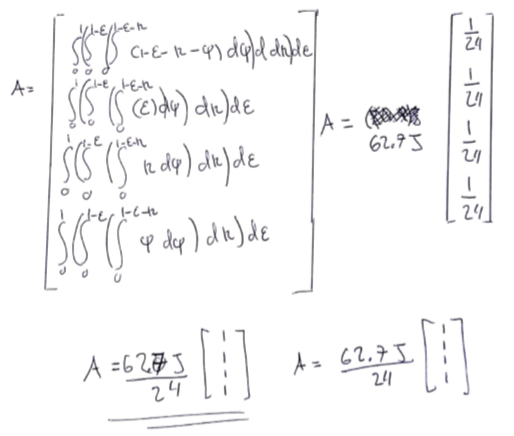 A = [ ∫₀¹(∫₀^{1-ε}(∫₀^{1-ε-n} (1-ε-n-φ) dφ) d dn) dε
∫₀¹(∫₀^{1-ε}(∫₀^{1-ε-n} (ε) dφ) dn) dε
∫₀¹(∫₀^{1-ε}(∫₀^{1-ε-n} n dφ) dn) dε
∫₀¹(∫₀^{1-ε}(∫₀^{1-ε-n} φ dφ) dn) dε ]
A = 62.7J [ 1/24
1/24
1/24
1/24 ]
A = 62.7J/24 [ 1 1 1 1 ]
A = 62.7J/24 [ 1 1 1 1 ]